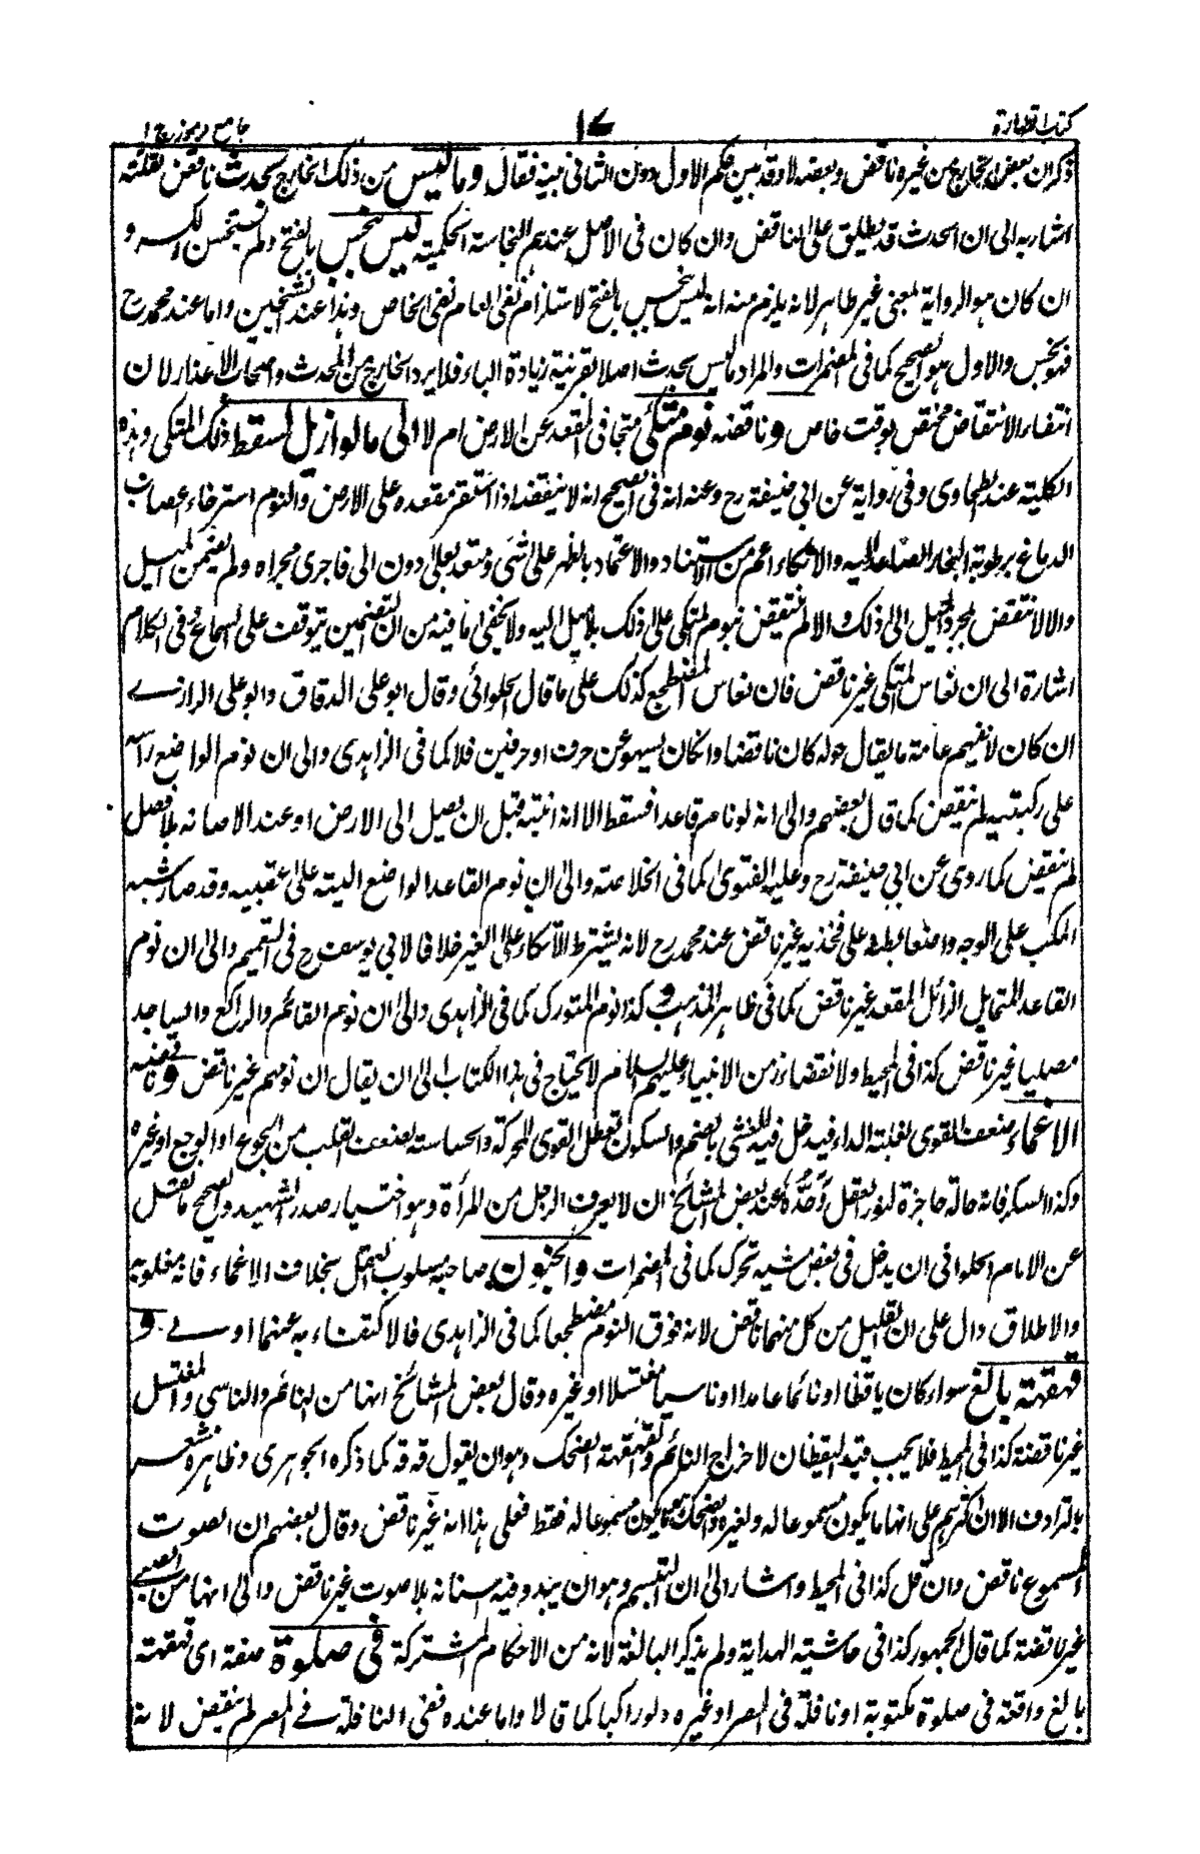 كتاب الطهارة
١٧
جامع رموز ج ١
ذكر ان بعض الخارج من غيره ناقض وبعضه لا وقد بين حكم الاول دون الثاني فبينه فقال وما ليس من ذلك الخارج بحدث ناقض لقلته
اشار به الى ان الحدث قد يطلق على الناقض وان كان فى الاصل عندهم النجاسة الحكمية ليس بنجس بالفتح ولم يستحسن الكسر و
ان كان هو الرواية لمعنى غير ظاهر لانه يلزم منه انه ليس بنجس بالفتح لاستلزام نفى العام نفى الخاص وهذا عند الشيخين واما عند محمد رح
فهو نجس والاول هو الصحيح كما فى المضمرات والمراد ما ليس بحدث اصلا بقرينة زيادة الباء فلا يرد الخارج من المحدث واصحاب الاعذار لان
انتفاء الانتقاض مختص بوقت خاص و ناقضه نوم متكئ متجافى المقعد عن الارض ام لا الى ما لو ازيل لسقط ذلك المتكى وهذه
الكلية عند الطحاوى وفى رواية عن ابى حنيفة رح وعنه انه فى الصحيح انه لا ينقض اذا استقر مقعده على الارض والنوم استرخاء اعصاب
الدماغ برطوبة البخار الصاعد اليه والاتكاء اعم من الاستناد والاعتماد بالظهر على شئ ومتعد بعلى دون الى فاجرى مجراه ولم يضمن الميل
والا لانتقض بمجرد الميل الى ذلك والا لم ينتقض بنوم المتكى على ذلك بلا ميل اليه ولا يخفى ما فيه من ان التضمين يتوقف على السماع وفى الكلام
اشارة الى ان نعاس المتكى غير ناقض فان نعاس المضطجع كذلك على ما قال الحلوائى وقال ابو على الدقاق وابو على الرازى
ان كان لا يفهم عامة ما يقال حوله كان ناقضا وان كان يسهو عن حرف او حرفين فلا كما فى الزاهدى والى ان نوم الواضع رأسه
على ركبتيه لم ينقض كما قال بعضهم والى انه لو نام قاعدا فسقط الا انه انتبه قبل ان يصل الى الارض او عند الاصابة بلا فصل
لم ينقض كما روى عن ابي حنيفة رح وعليه الفتوى كما فى الخلاصة والى ان نوم القاعد الواضع اليته على عقبيه وقد صار شبه
المكب على الوجه واضعا بطنه على فخذيه غير ناقض عند محمد رح لانه يشترط الاتكاء على الغير خلافا لابي يوسف رح فى التعميم والى ان نوم
القاعد المتمايل الزائل المقعد غير ناقض كما فى ظاهر المذهب وكذا نوم المتورك كما فى الزاهدى والى ان نوم القائم والراكع والساجد
مصليا غير ناقض كذا فى المحيط ولانقضاء زمن الانبياء عليهم السلام لا يحتاج فى هذا الكتاب الى ان يقال ان نومهم غير ناقض و ناقضه
الاغماء ضعف القوى لغلبة الداء فيدخل فيه الغشى بالضم والسكون تعطل القوى المحركة والحساسة لضعف القلب من الجوع او الوجع او غيره
وكذا السكر فانه حالة حاجزة لنور العقل وحده عند بعض المشائخ ان لا يعرف الرجل من المرأة وهو اختيار صدر الشهيد والصحيح ما نقل
عن الامام الحلوانى ان يدخل فى بعض مشيه تحرك كما فى المضمرات والجنون صاحبه مسلوب العقل بخلاف الاغماء فانه مغلوبه
والاطلاق دال على ان القليل من كل منهما ناقض لانه فوق النوم مضطجعا كما فى الزاهدى فالاكتفاء به عنهما اولى و
قهقهة بالغ سواء كان يقظانا او نائما عامدا او ناسيا مغتسلا او غيره وقال بعض المشائخ انها من النائم والناسى والمغتسل
غير ناقضة كذا فى المحيط فلا يجب قيد اليقظان لاخراج النائم والقهقهة الضحك وهو ان يقول قه قه كما ذكره الجوهرى وظاهره مشعر
بالترادف الا ان اكثرهم على انها ما يكون مسموعا له ولغيره والضحك ما يكون مسموعا له فقط فعلى هذا انه غير ناقض وقال بعضهم ان الصوت
المسموع ناقض وان قل كذا فى المحيط واشار الى ان التبسم وهو ان يبدو فيه اسنانه بلا صوت غير ناقض والى انها من الصبى
غير ناقضة كما قال الجمهور كذا فى حاشية الهداية ولم يذكر البالغة لانه من الاحكام المشتركة فى صلوة صفة اى قهقهة
بالغ واقعة فى صلوة مكتوبة او نافلة فى المصر او غيره ولو راكبا كما قالا واما عنده ففى النافلة فى المصر لم ينقض لانه